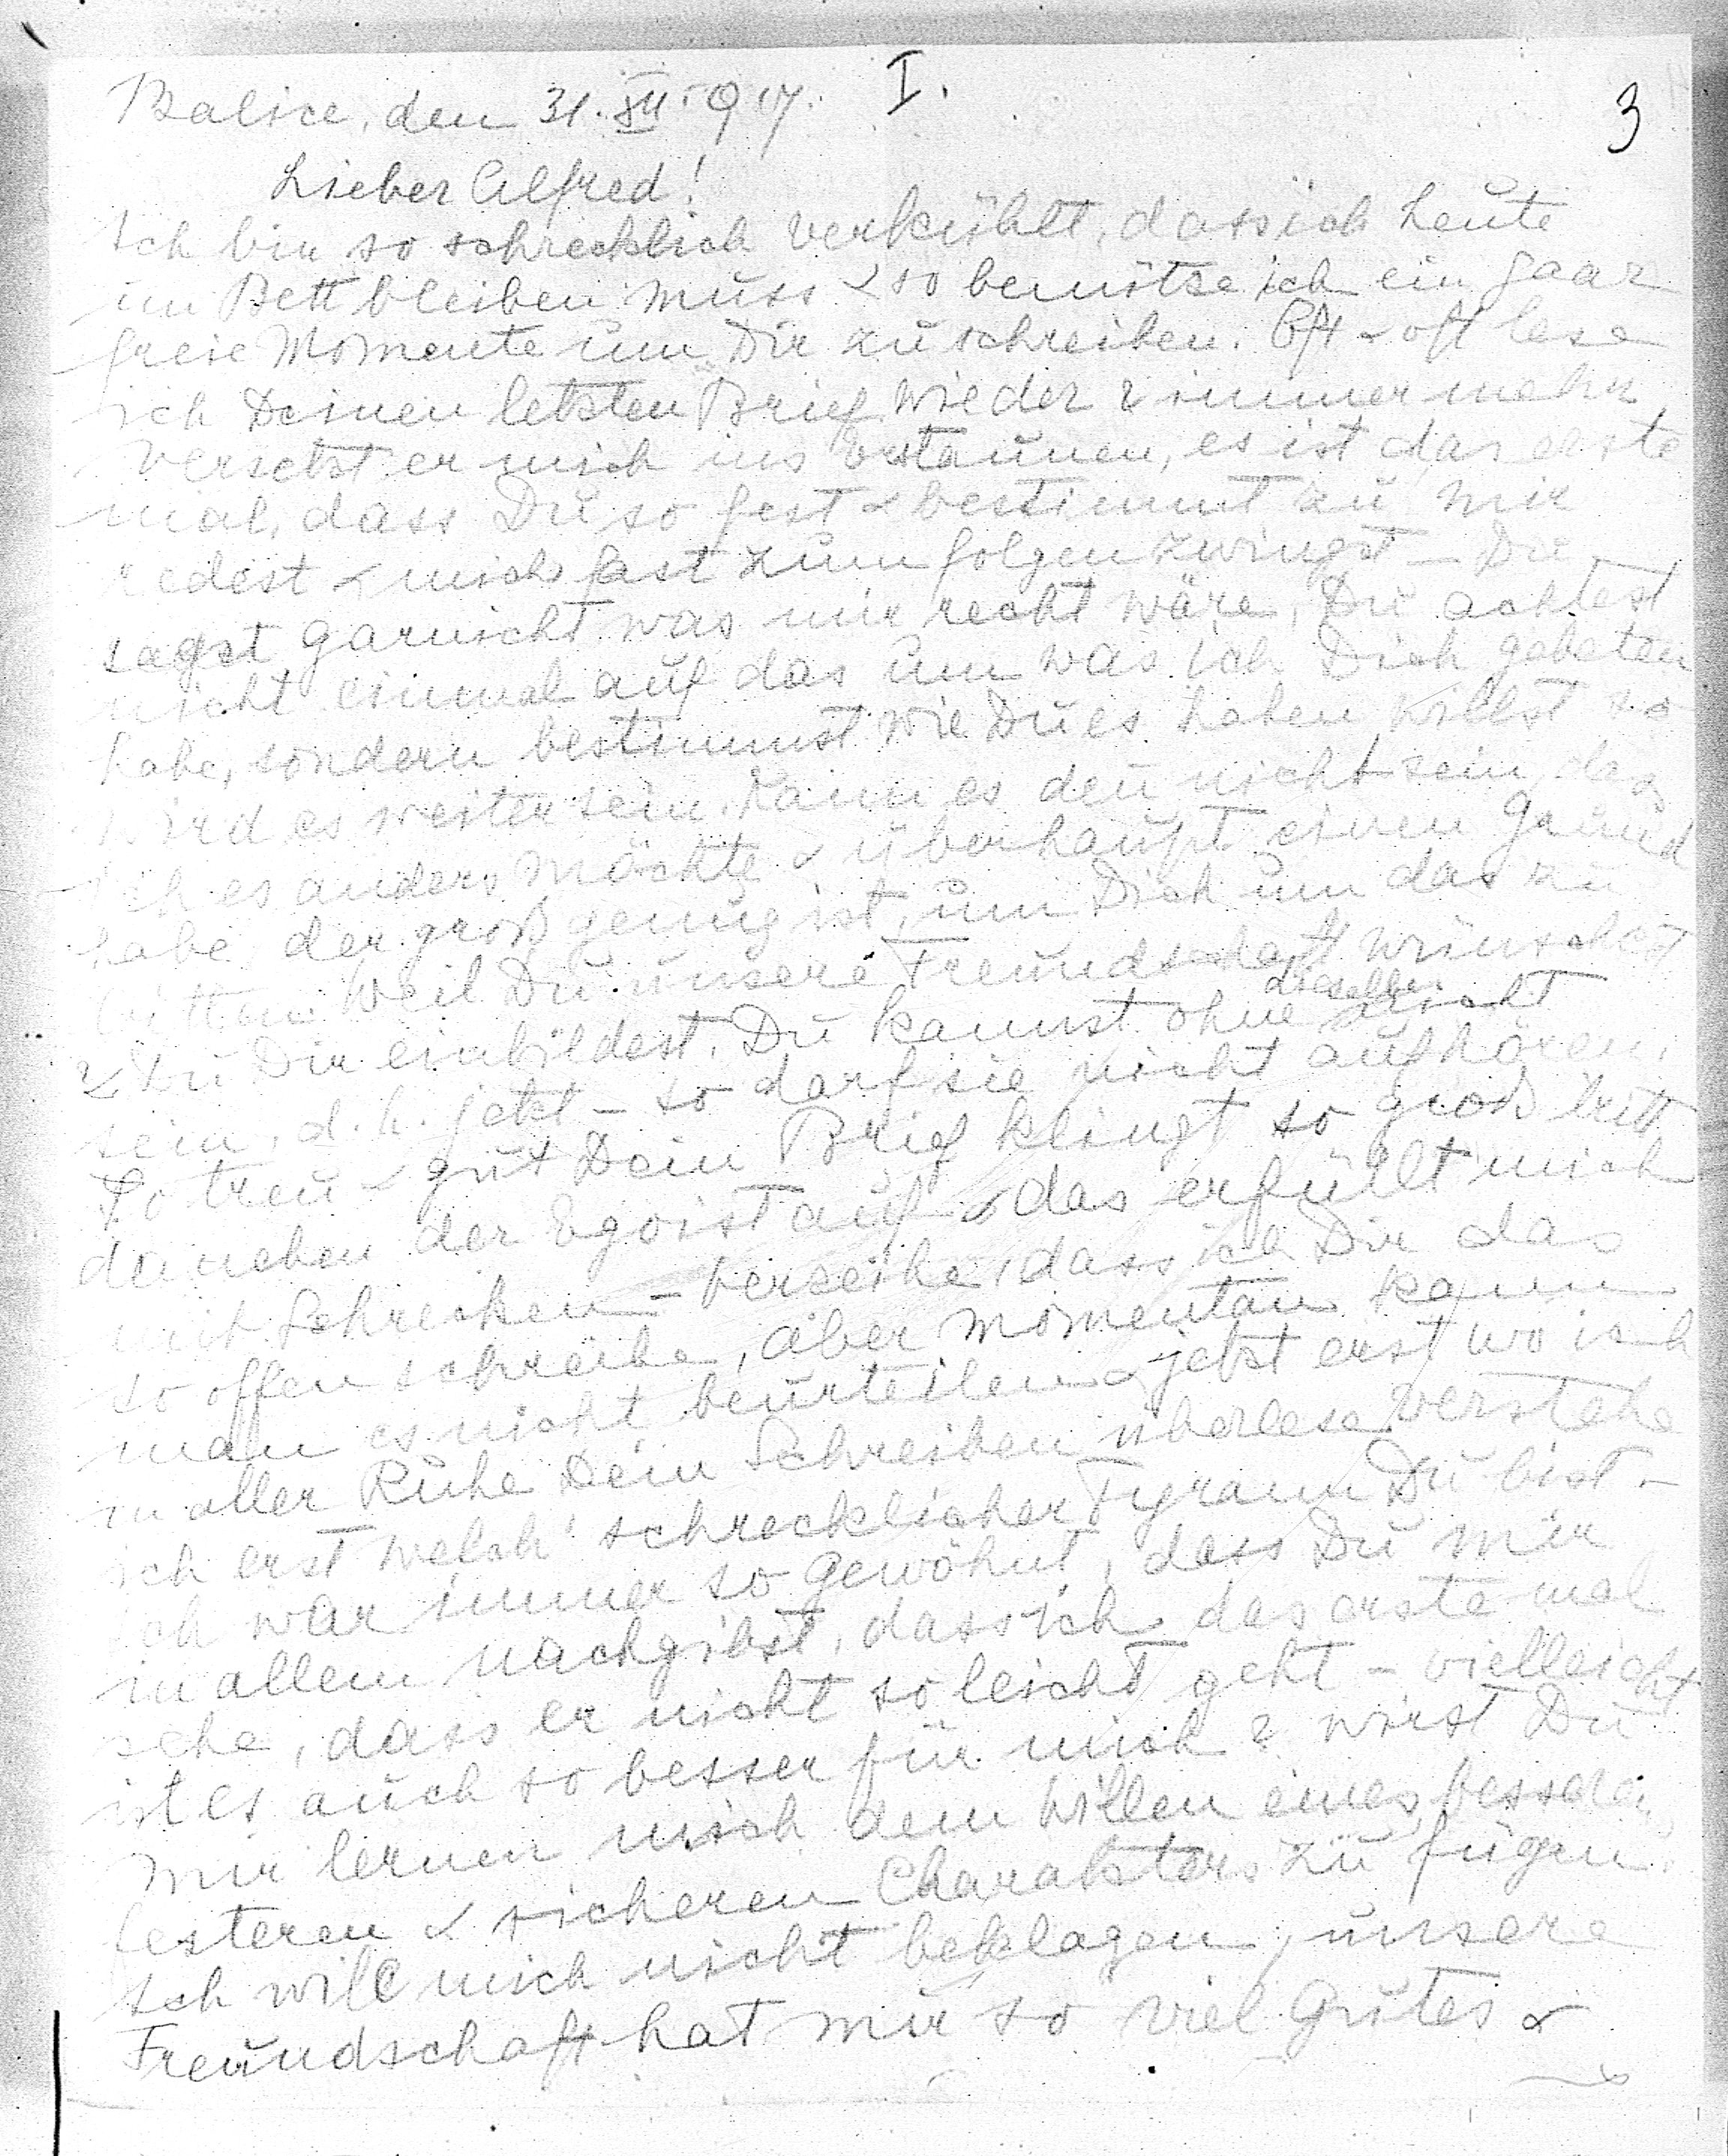 Balice, den 31. XII. 917. I. 3
Lieber Alfred!
Ich bin so schrecklich verkühlt, dass ich heute
im Bett bleiben muss & so benütze ich ein paar
freie Momente um Dir zu schreiben. Oft & oft lese
ich Deinen letzten Brief wieder & immer mehr
versetzt er mich ins Erstaunen, es ist das erste
mal, dass Du so fest & bestimmt zu mir
redest & mich fast zum folgen zwingst – Du
sagst garnicht was mir recht wäre, Du achtest
nicht einmal auf das um was ich Dich gebeten
habe, sondern bestimmst wie Du es haben willst & so
wird es weiter sein. Kann es den nicht sein das
ich es anders möchte & überhaupt einen Grund
habe der groß genug ist, um Dich um das zu
bitten. Weil Du unsere Freundschaft wünschst
& Du Dir einbildest, Du kannst ohne dieselbe nicht
sein, d. h. jetzt – so darf sie nicht aufhören.
So treu & gut Dein Brief klingt so groß tritt
daneben der Egoist auf & das erfüllt mich
mit Schrecken – verzeihe, dass ich Dir das
so offen schreibe, aber momentan kann
man es nicht beurteilen & jetzt erst wo ich
in aller Ruhe Dein Schreiben überlese verstehe
ich erst welch' schrecklicher Tyrann Du bist –
ich war immer so gewöhnt, dass Du mir
in allem nachgibst, dass ich das erste mal
sehe, dass er nicht so leicht geht – vielleicht
ist es auch so besser für mich & wirst Du
mir lernen mich dem Willen eines besseren
festeren & sicheren Charakters zu fügen.
Ich will mich nicht beklagen, unsere
Freundschaft hat mir so viel Gutes &